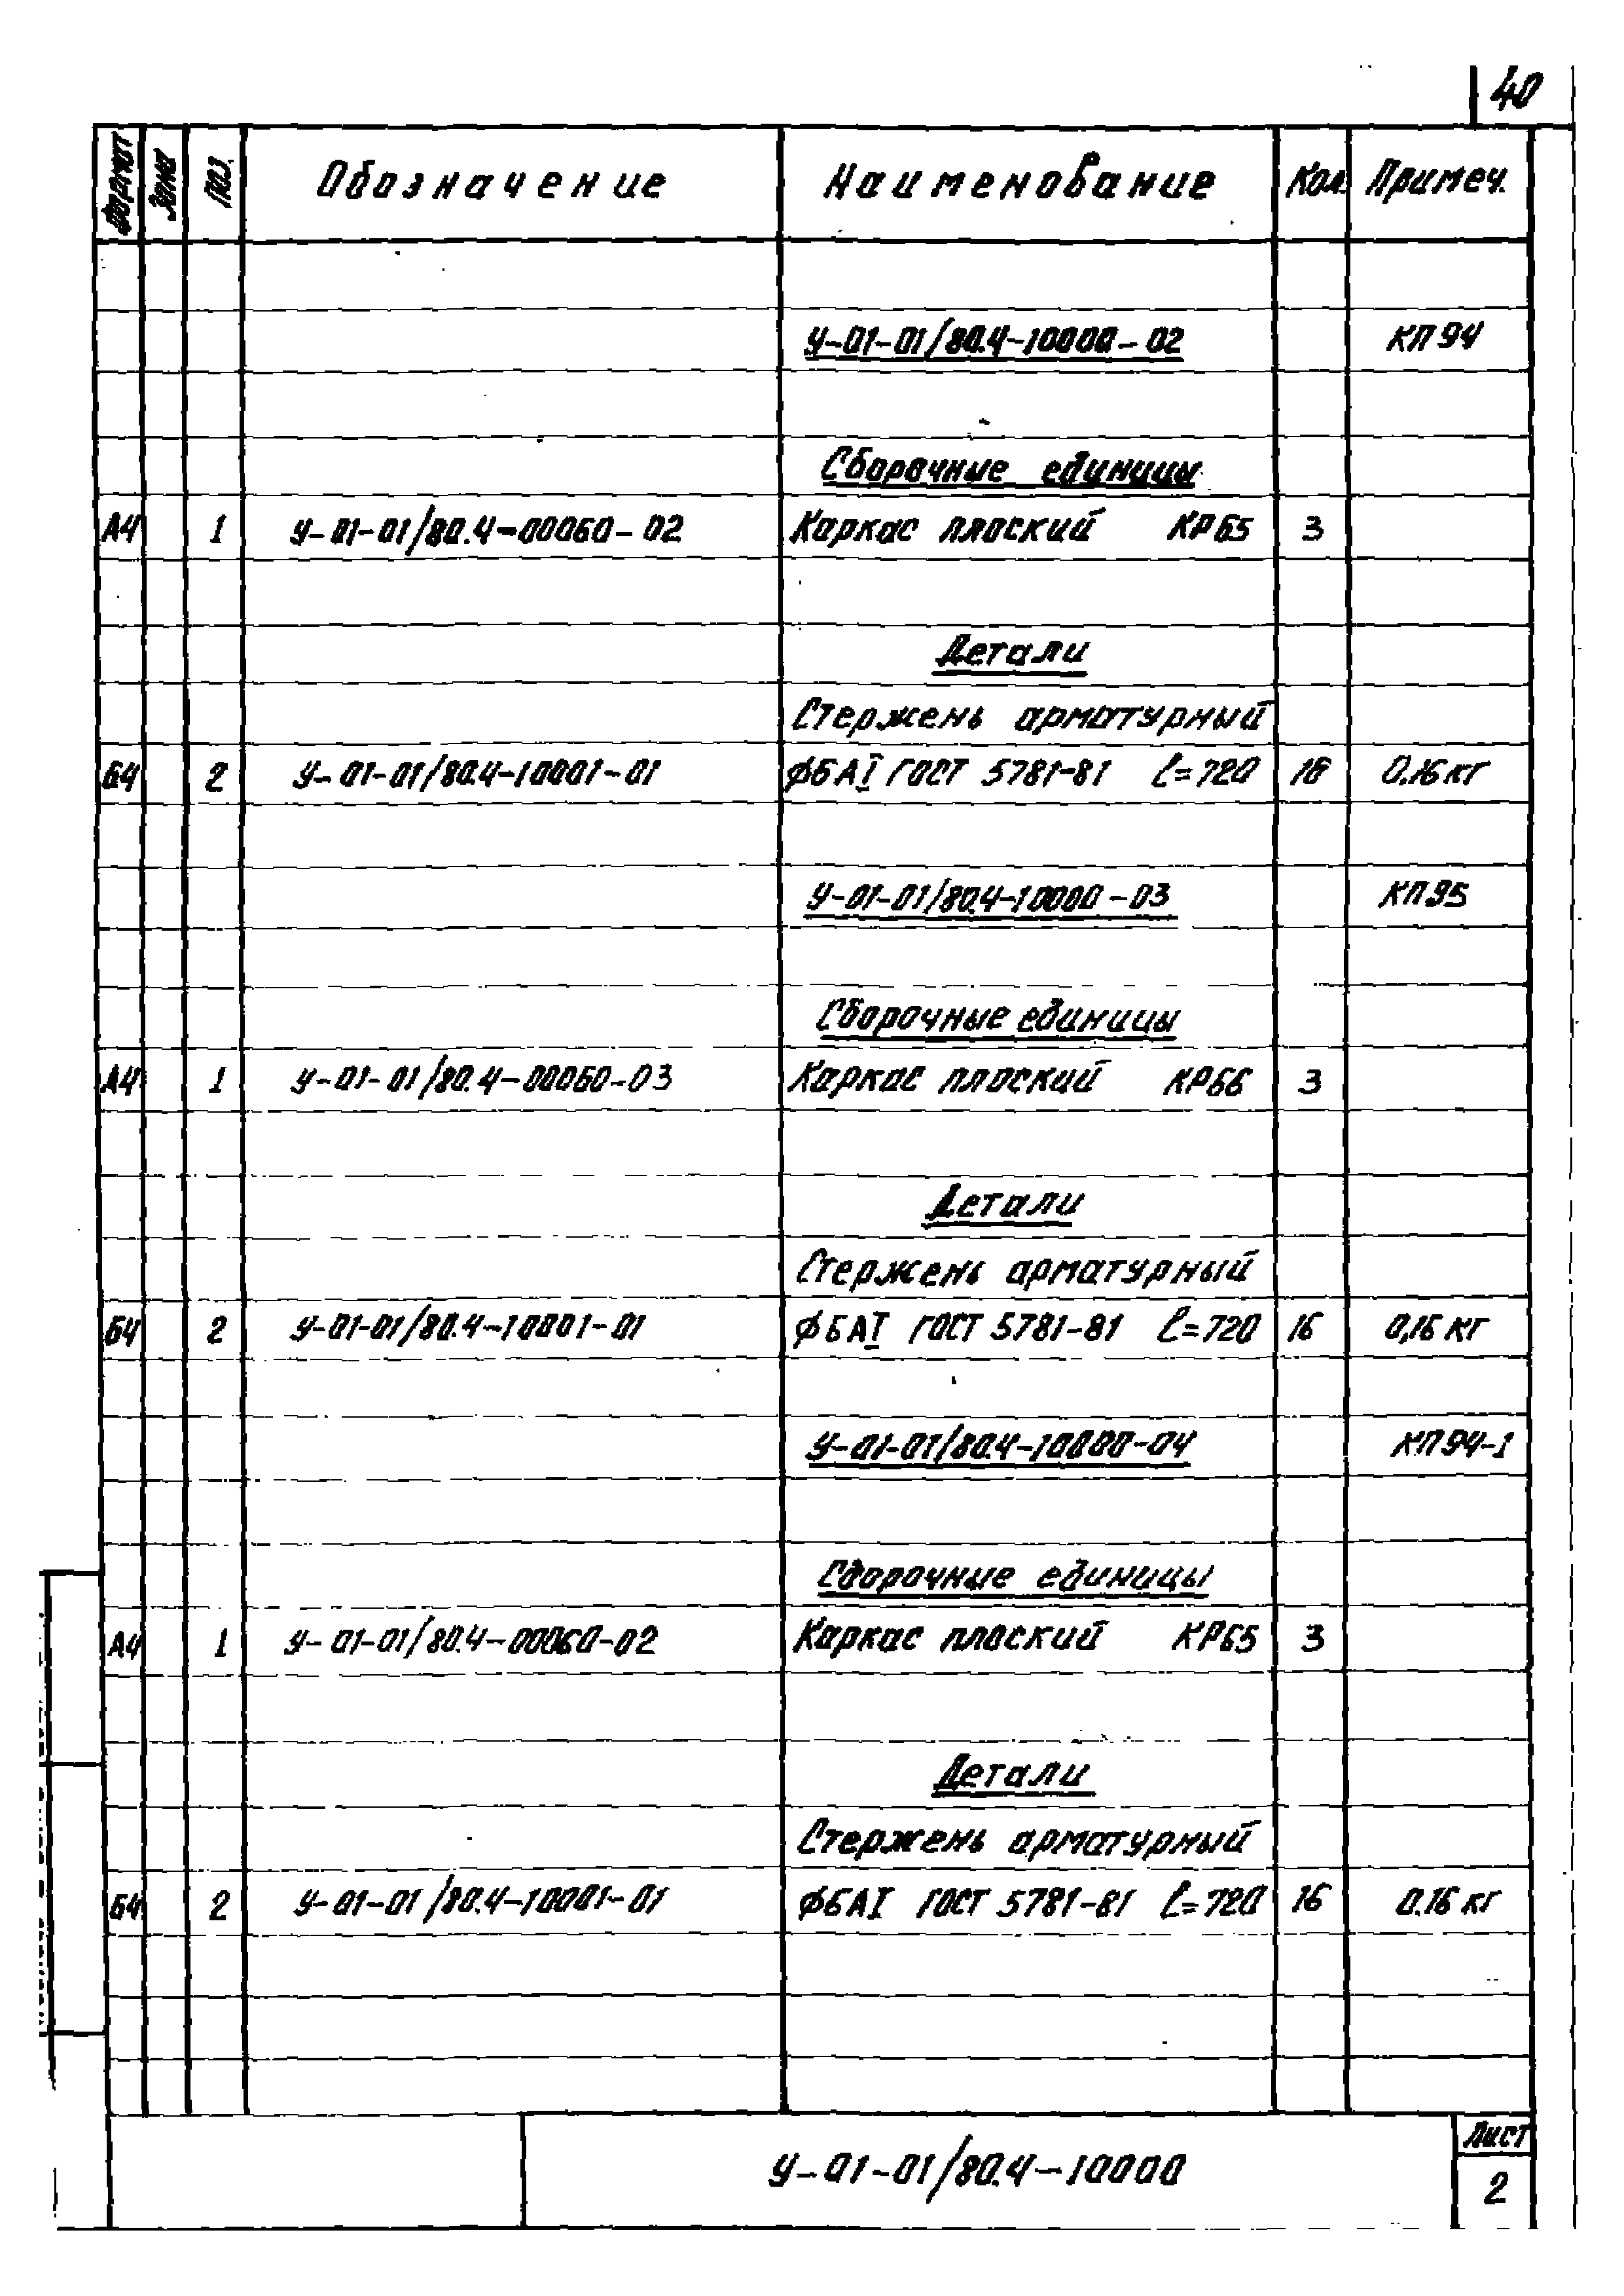 40
Формат Зона Поз. Обозначение Наименование Кол. Примеч.
У-01-01/80.4-10000-02 КП94
Сборочные единицы
А4 1 У-01-01/80.4-00060-02 Каркас плоский КР65 3
Детали
Стержень арматурный
Б4 2 У-01-01/80.4-10001-01 ⌀6АI ГОСТ 5781-81 l=720 16 0.16кг
У-01-01/80.4-10000-03 КП95
Сборочные единицы
А4 1 У-01-01/80.4-00060-03 Каркас плоский КР66 3
Детали
Стержень арматурный
Б4 2 У-01-01/80.4-10001-01 ⌀6АI ГОСТ 5781-81 l=720 16 0,16 кг
У-01-01/80.4-10000-04 КП94-1
Сборочные единицы
А4 1 У-01-01/80.4-00060-02 Каркас плоский КР65 3
Детали
Стержень арматурный
Б4 2 У-01-01/80.4-10001-01 ⌀6АI ГОСТ 5781-81 l=720 16 0.16 кг
У-01-01/80.4-10000
Лист
2